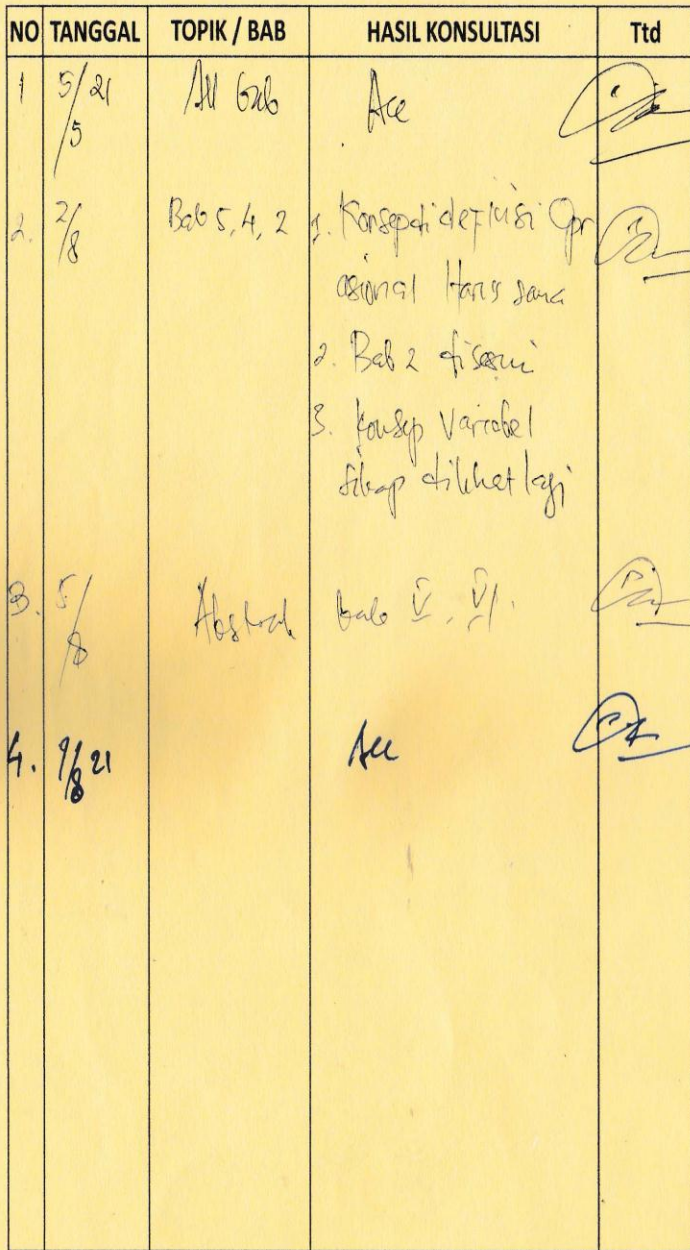 NO TANGGAL TOPIK / BAB HASIL KONSULTASI Ttd
1 5/5 21 All bab Acc
2. 2/8 Bab 5, 4, 2 1. Konsep definisi Opr
asional Harus sama
2. Bab 2
3. Konsep Variabel
sikap dilihat lagi
3. 5/8 Abstrak bab V, VI.
4. 9/8 21 Acc